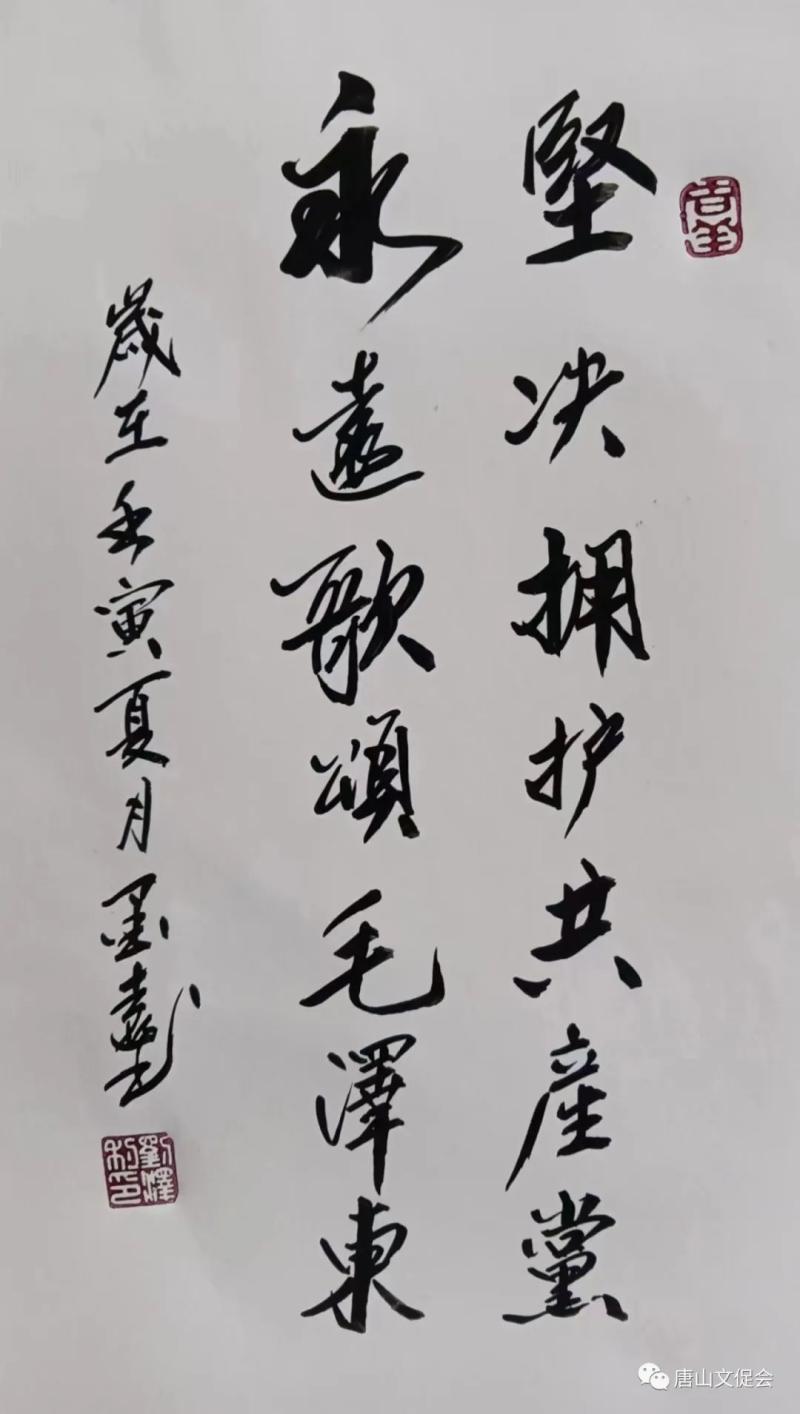 堅决拥护共産黨
永遠歌頌毛澤東
歲在壬寅夏月墨
劉澤利印
唐山文促会